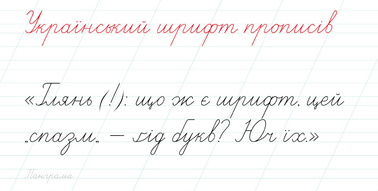 Український шрифт прописів
«Глянь (!): що ж є шрифт, цей
„спазм„ — гід букв? Юч їх.»
Панграма